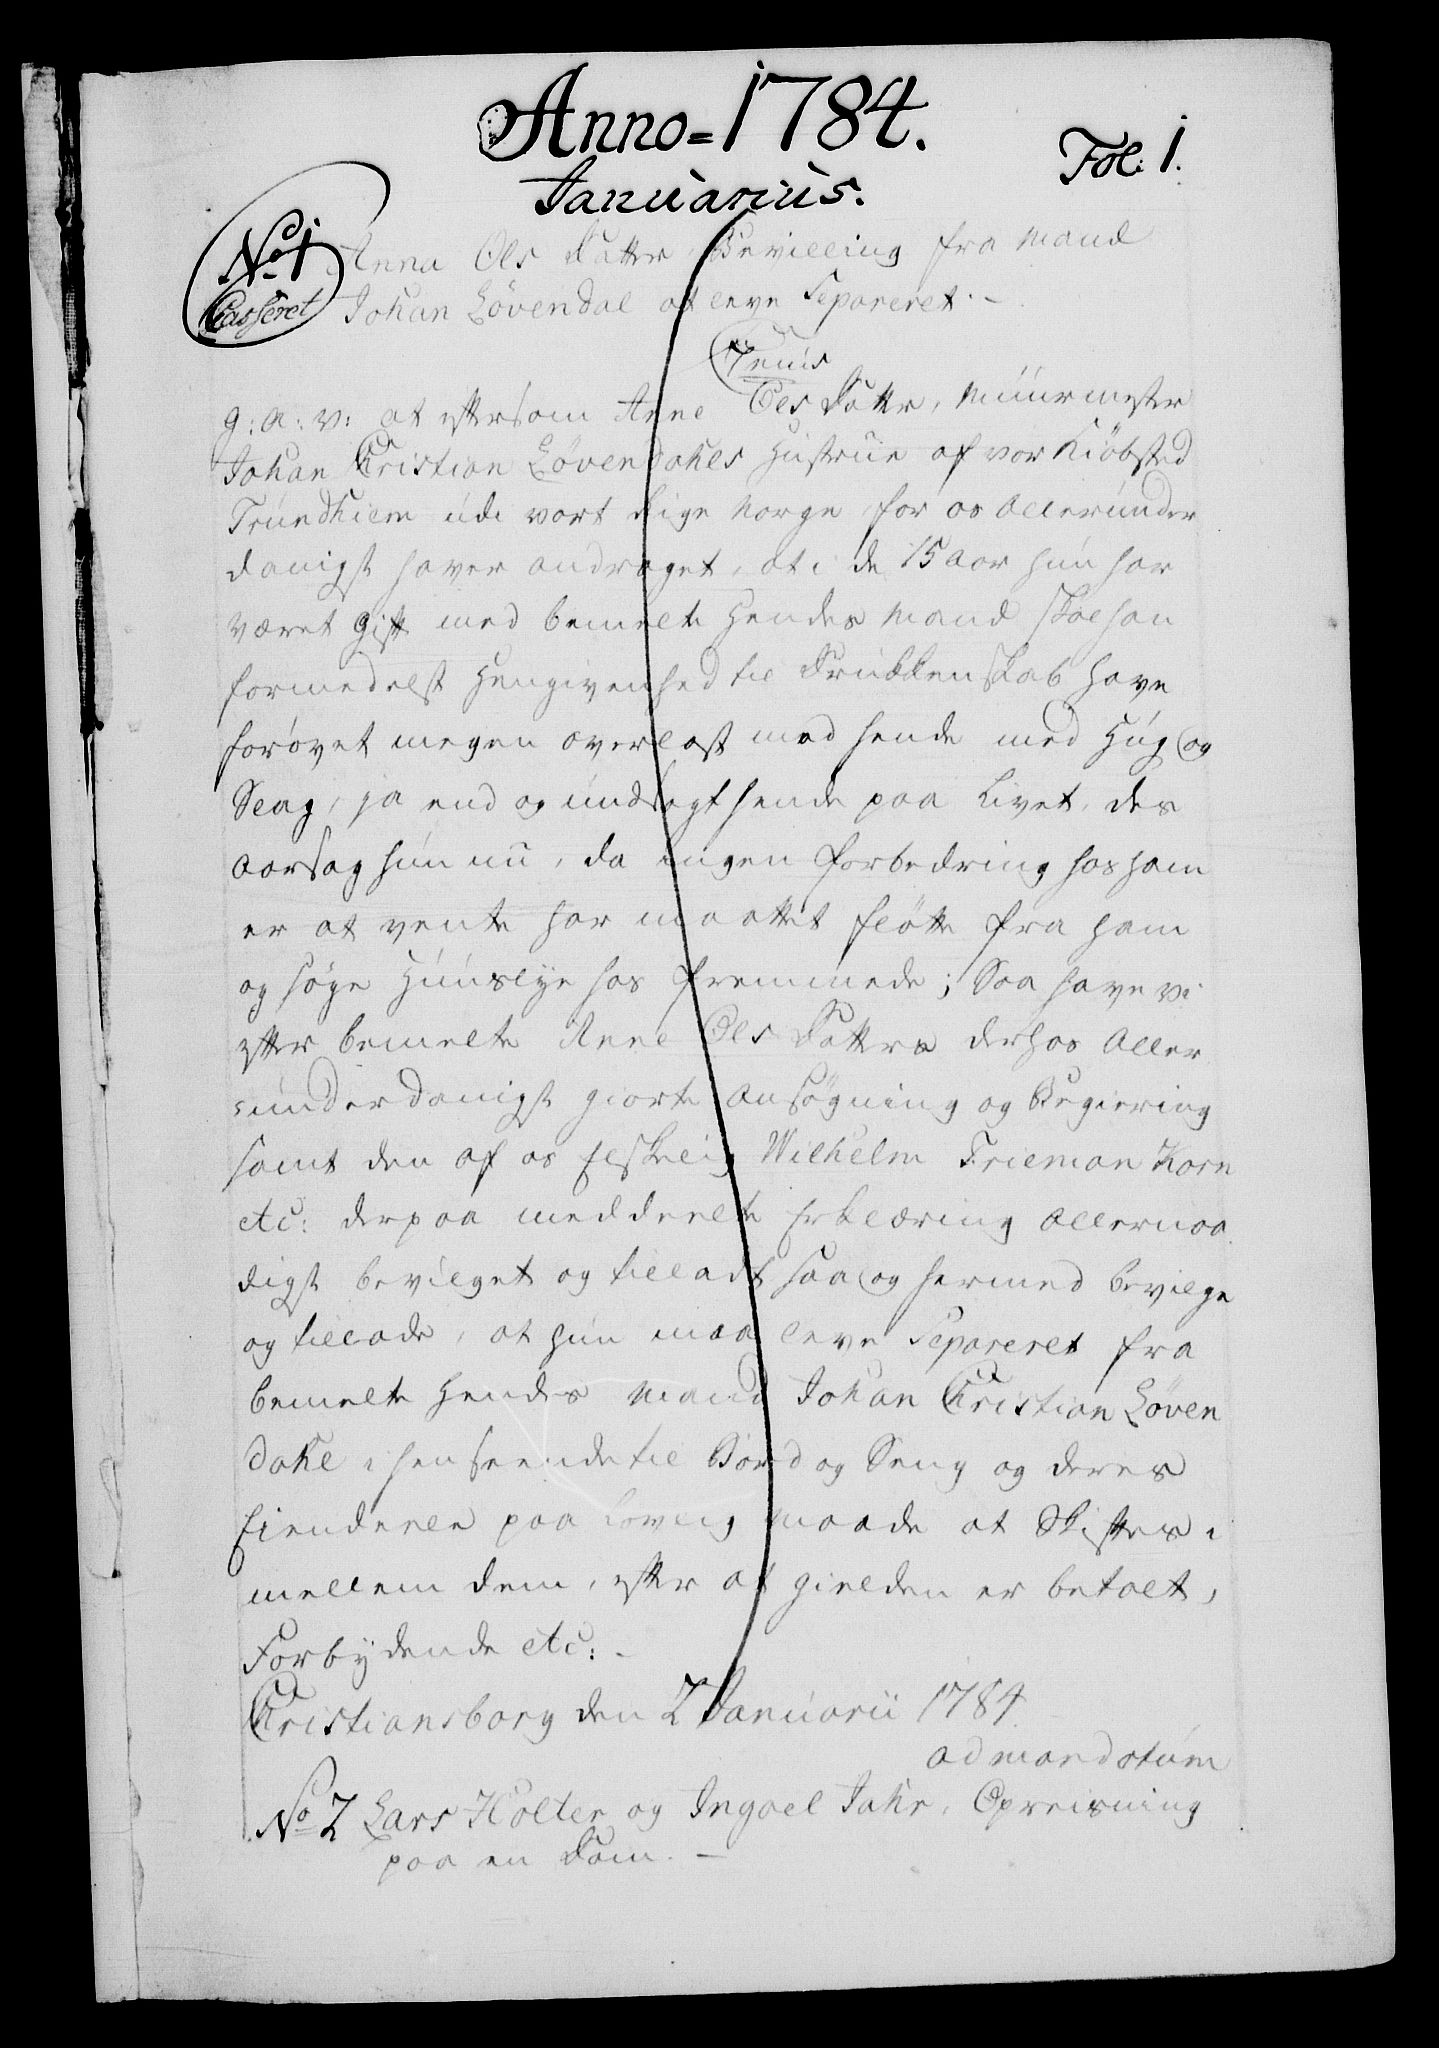 Anno=1784.
Fol: 1.
Januarius.
No 1
Casseret
Anna Ols Datter Bevilling fra Mand
Johan Lövendal at leve Separeret. -
g: a: v: at eftersom Anne Ols Datter, Muurmester
Johan Christian Lövendahls Hustrue af vor Kiöbsted
Trundhiem udi vort Rige Norge for os Allerunder
danigst haver andraget, at i de 15 aar hun har
været gift med bemelte Hendes Mand skal han
formedelst Hengivenhed til Drukkenskab have
forøvet megen overlast mod hende med Hug og
Slag, ja end og undsagt hende paa Livet, des
aarsag hun nu, da ingen forbedring hos ham
er at vente har maattet flötte fra ham
og søge Huuslye hos fremmede; Saa have vi
efter bemelte Anne Ols Datters derhos Aller
underdanigst giorte Ansögning og Begiering
samt den af os Elskelig Wilhelm Frieman Korn
etc: derpaa meddeelte Erklæring Allernaa
digst bevilget og tilladt saa og hermed bevilge
og tillade, at hun maa leve Separeret fra
bemelte Hendes Mand Johan Christian Löven
dahl i henseende til Bord og Seng og deres
Eiendeele paa lovlig Maade at Skiftes i
mellem dem, efter at gielden er betalt,
Forbydende etc: -
Christiansborg den 2 Januarii 1784.
ad mandatum
No 2 Lars Holter og Ingael Jahr, Opreisning
paa en Dom. -